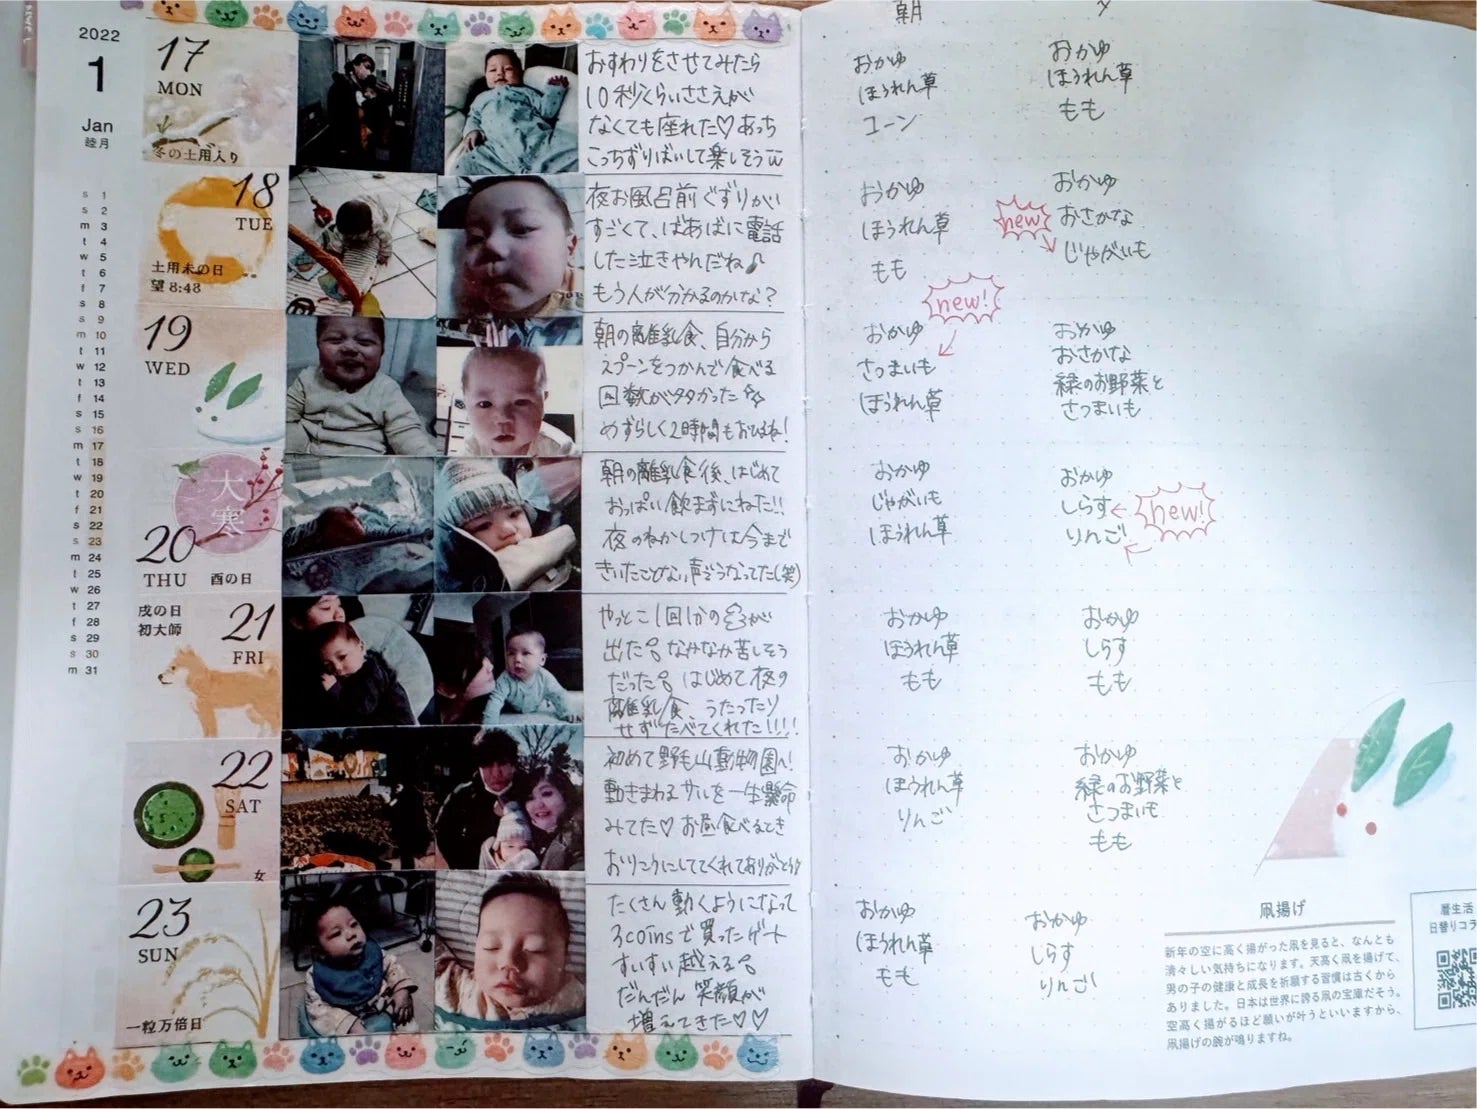 2022
1
Jan
睦月
s 1
s 2
m 3
t 4
w 5
t 6
f 7
s 8
s 9
m 10
t 11
w 12
t 13
f 14
s 15
s 16
m 17
t 18
w 19
t 20
f 21
s 22
s 23
m 24
t 25
w 26
t 27
f 28
s 29
s 30
m 31
17
MON
冬の土用入り
おすわりをさせてみたら
10秒くらいささえが
なくても座れた♡あっち
こっちずりばいして楽しそう
18
TUE
土用未の日
望 8:48
夜お風呂前ぐずりがい
すごくて、ばあばに電話
した泣きやんだね♪
もう人が分かるのかな?
19
WED
朝の離乳食、自分から
スプーンをつかんで食べる
回数が多かった☆
めずらしく2時間もおひるね!
大寒
20
THU
酉の日
朝の離乳食後、はじめて
おっぱい飲まずにねた!!
夜のねかしつけは今まで
きいたことない声でうなってた(笑)
戌の日
初大師
21
FRI
やっとこ1回だけの
出た なかなか苦しそう
だった はじめて夜の
離乳食、うたったり
せずたべてくれた!!!!
22
SAT
女
初めて野毛山動物園へ!
動きまわるサルを一生懸命
みてた♡ お昼食べるとき
おりこうにしててくれてありがとう♡
23
SUN
一粒万倍日
たくさん動くようになって
3coinsで買ったゲート
すいすい越える
だんだん笑顔が
増えてきた♡♡
朝
夕
おかゆ
ほうれん草
コーン
おかゆ
ほうれん草
もも
おかゆ
ほうれん草
もも
おかゆ
おさかな
じゃがいも
new!
new!
おかゆ
さつまいも
ほうれん草
おかゆ
おさかな
緑のお野菜と
さつまいも
おかゆ
じゃがいも
ほうれん草
おかゆ
しらす
りんご
new!
おかゆ
ほうれん草
もも
おかゆ
しらす
もも
おかゆ
ほうれん草
りんご
おかゆ
緑のお野菜と
さつまいも
もも
おかゆ
ほうれん草
もも
おかゆ
しらす
りんご
凧揚げ
新年の空に高く揚がった凧を見ると、なんとも
清々しい気持ちになります。天高く凧を揚げて、
男の子の健康と成長を祈願する習慣は古くから
ありました。日本は世界に誇る凧の宝庫だそう。
空高く揚がるほど願いが叶うといいますから、
凧揚げの腕が鳴りますね。
暦生活
日替りコラ